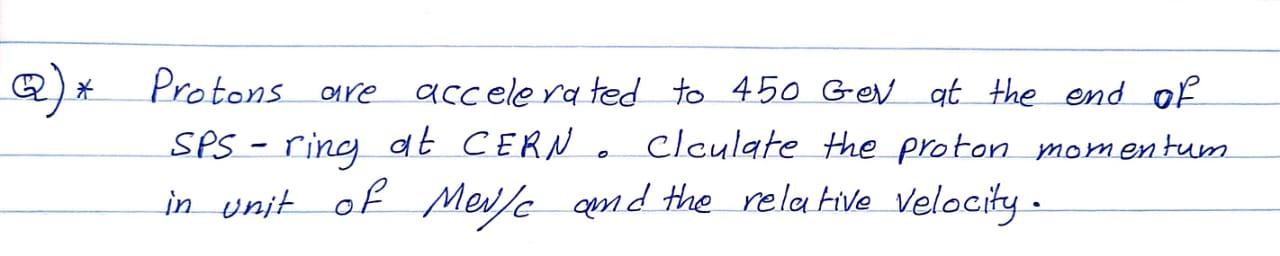 Q)* Protons are accelerated to 450 GeV at the end of
SPS - ring at CERN . Clculate the proton momentum
in unit of MeV/c and the relative velocity.